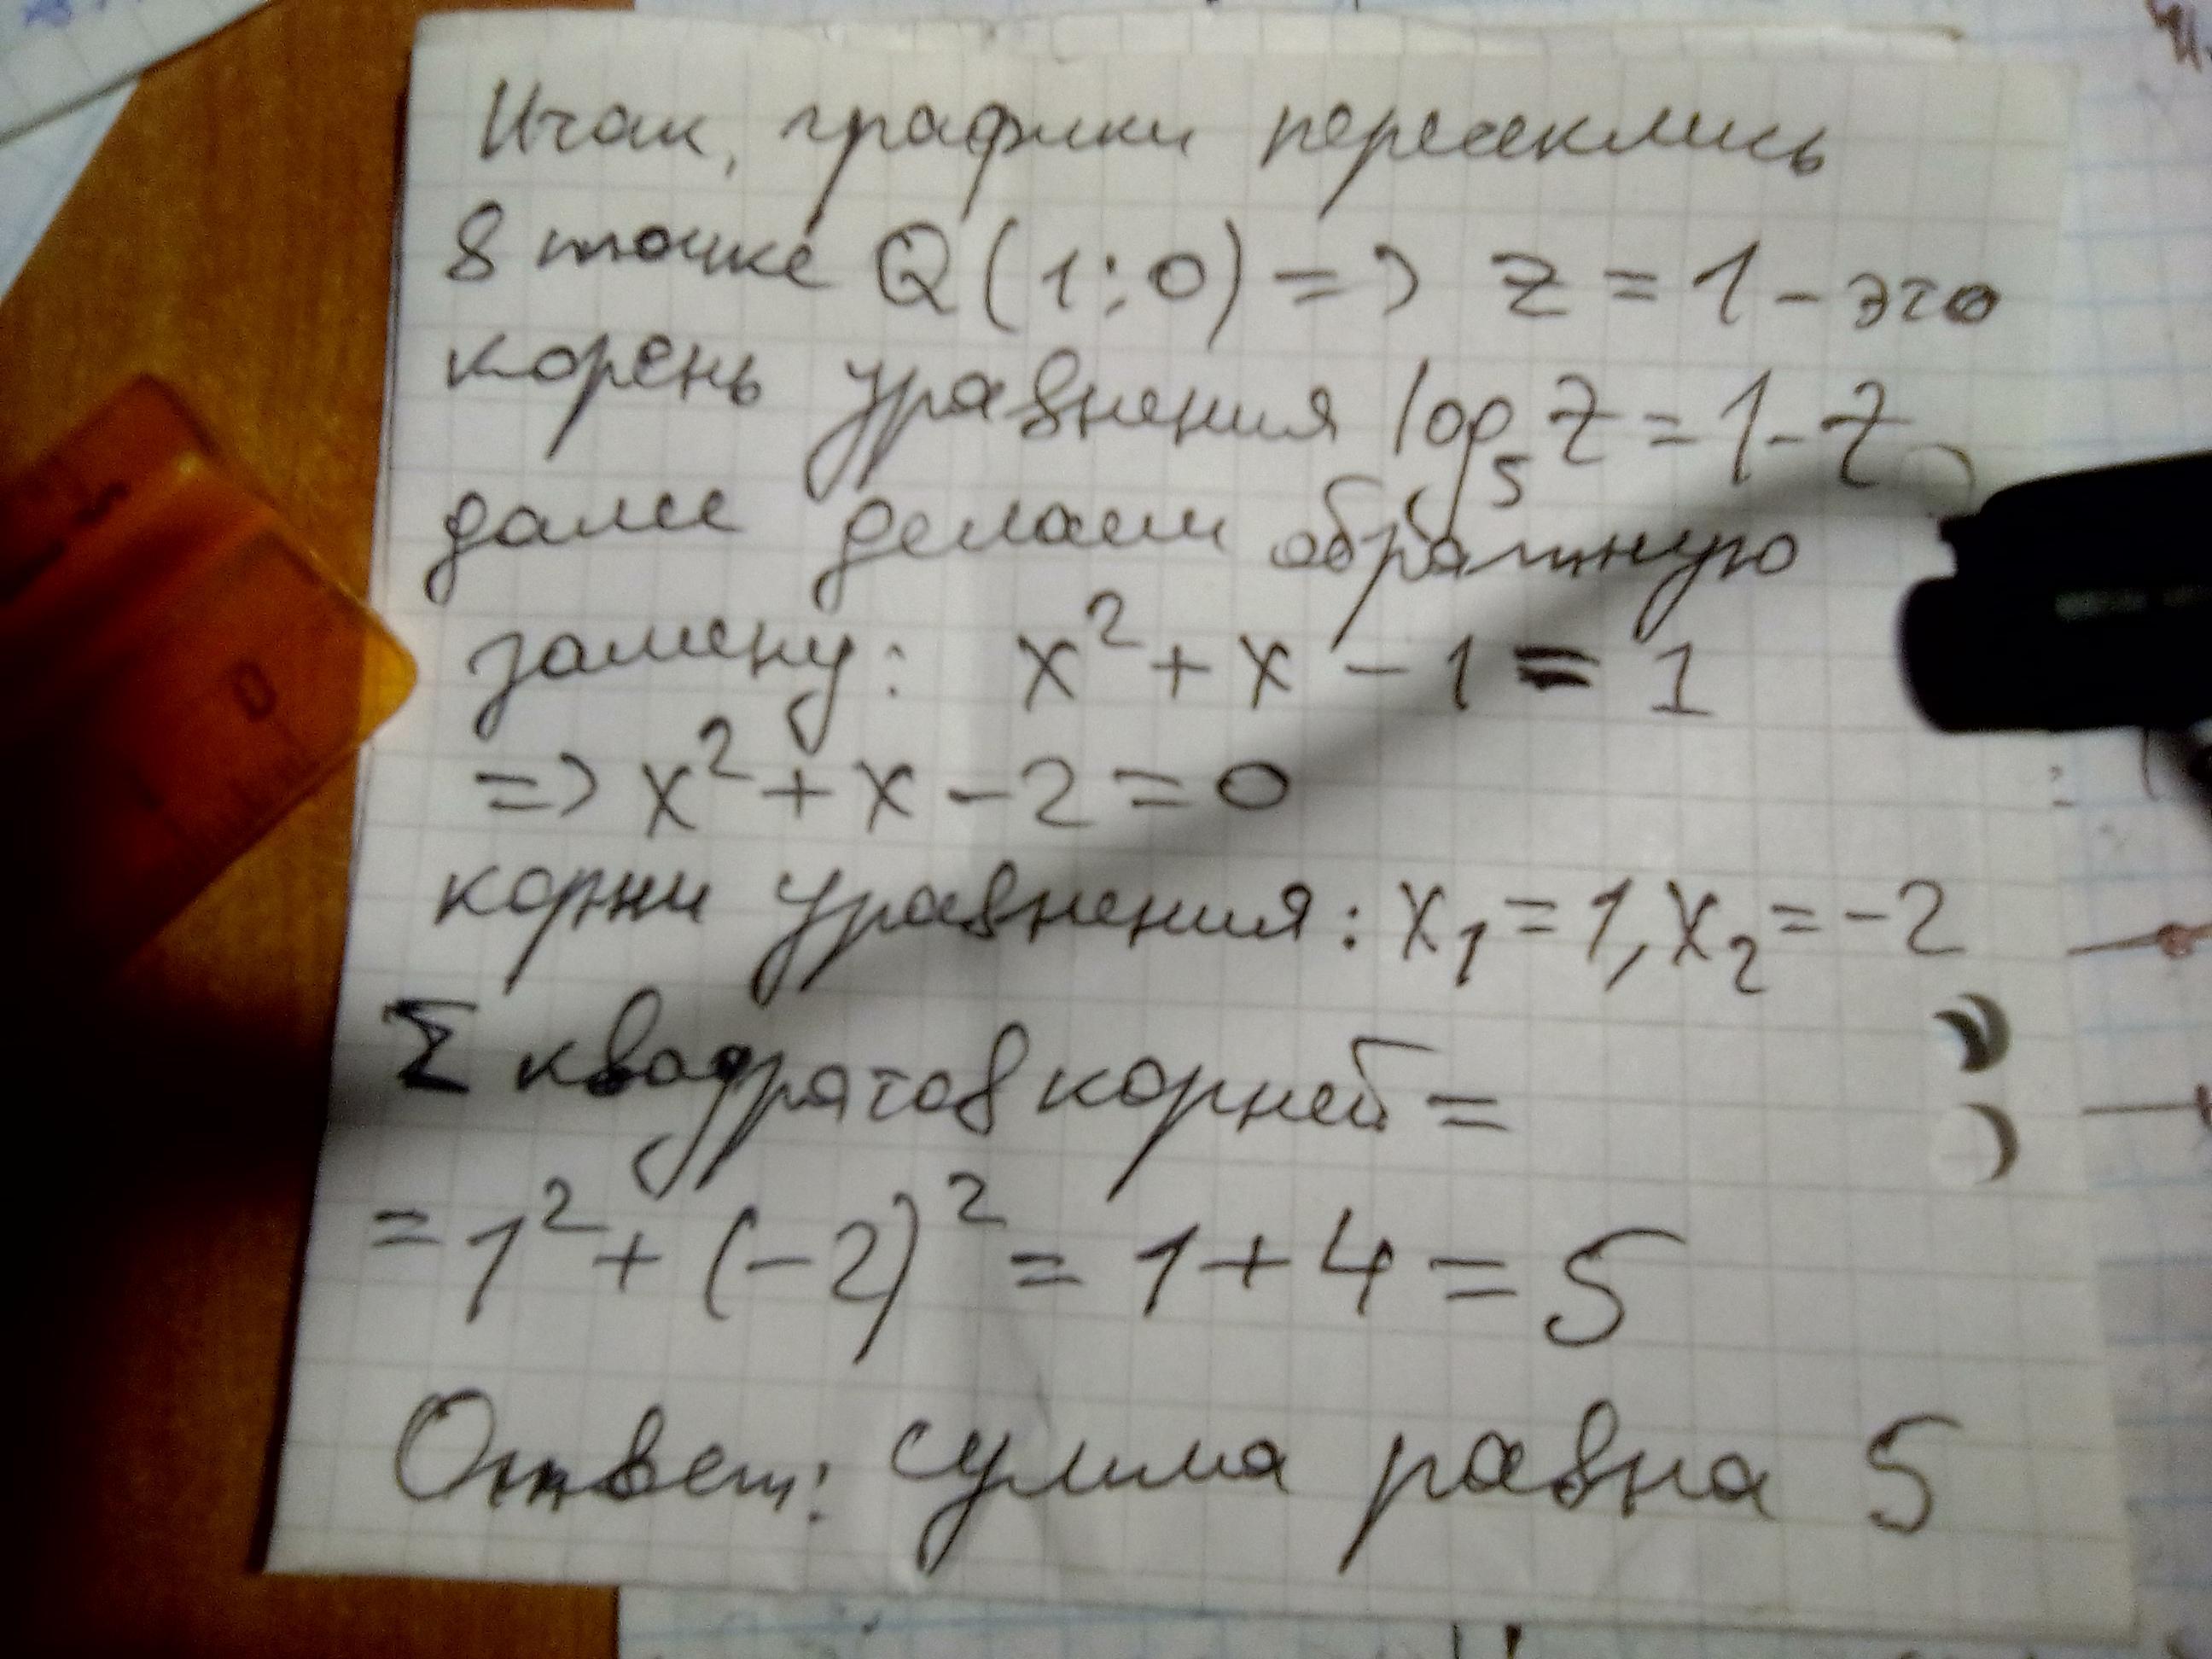 Итак, графики пересеклись
в точке Q(1;0) => z = 1 - это
корень уравнения log₅z = 1 - z
далее делаем обратную
замену: x² + x - 1 = 1
=> x² + x - 2 = 0
корни уравнения: x₁ = 1, x₂ = -2
Σ квадратов корней =
= 1² + (-2)² = 1 + 4 = 5
Ответ: сумма равна 5